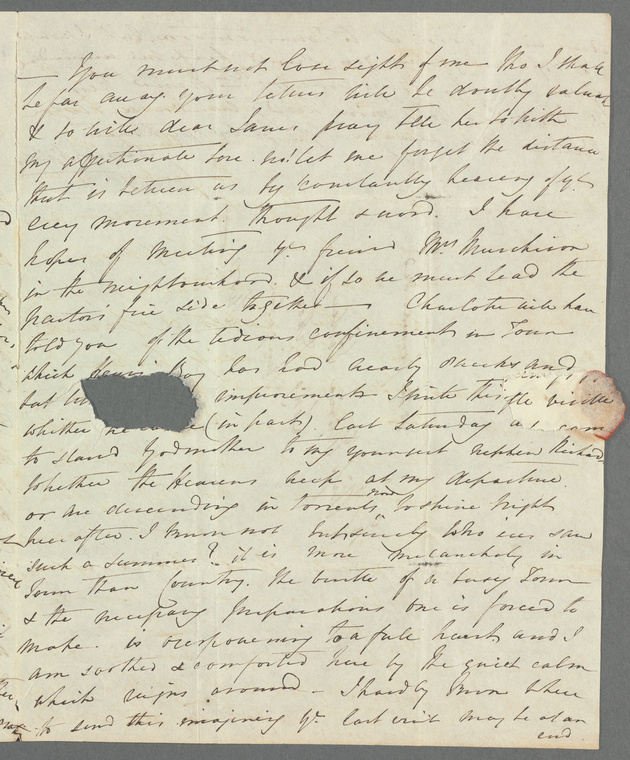 — You must not lose sight of me tho I shall
be far away. your letters will be doubly valued
& so will dear Janes pray tell her so with
my affectionate love. & let me forget the distance
that is between us by constantly hearing of yr
every movement. thought & word. I have
hopes of meeting yr friend Mrs Murchison
in the neighbourhood. & if so we must tread the
fire side together — Charlotte will have
told you of the tedious confinement in Town
which Henrys Boy has had nearly weeks and
but improvements I write this
whither he came (in part). last Saturday as I came
to stand Godmother to my youngest nephew Richard
Whether the Heavens weep at my departure.
or are descending in torrents now to shine bright
hereafter. I know not but surely who ever saw
such a summer? it is more melancholy in
Town than Country. the bustle of a busy Town
& the necessary preparations one is forced to
make. is overpowering to a full heart, and I
am soothed & comforted here by the quiet calm
which reigns around — I hardly know where
to send this imagining yr last visit may be at an
end